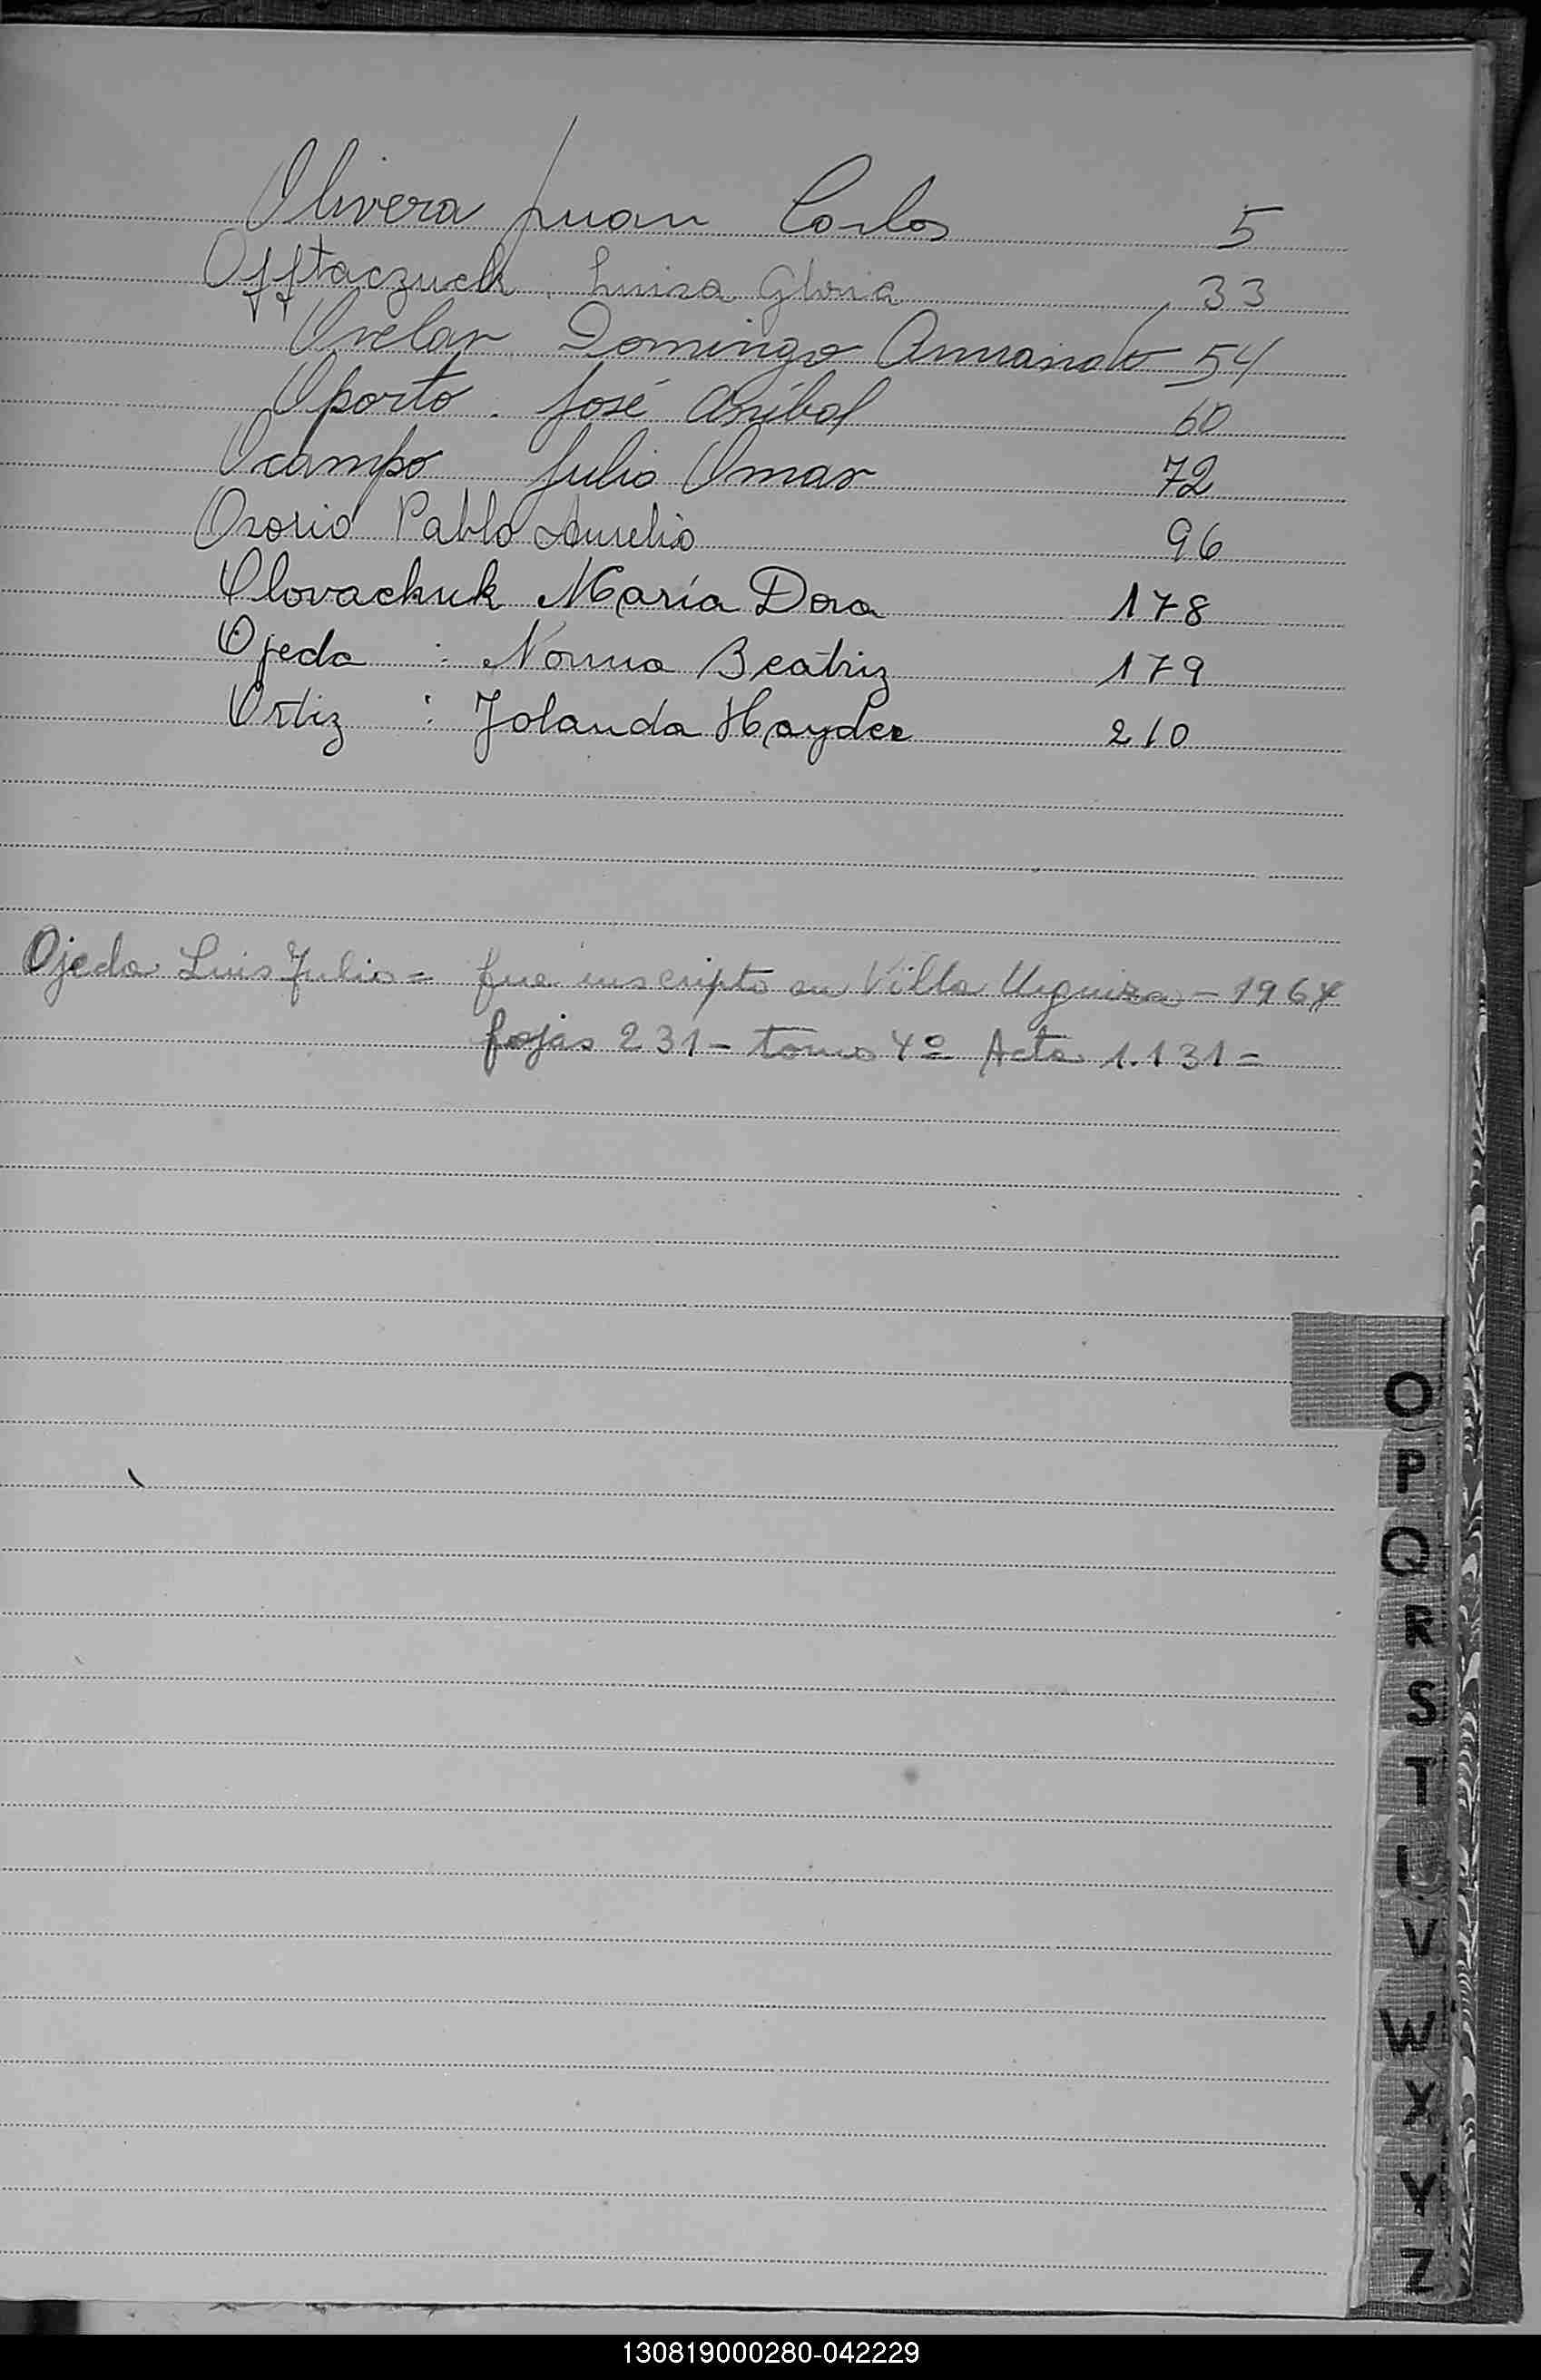 Olivera Juan Carlos 5
Offtaczuck. Luisa Gloria 33
Ovelar Domingo Armando 54
Oporto. José Anibal 60
Ocampo Julio Omar 72
Osorio Pablo Aurelio 96
Olovachuk María Dora 178
Ojeda : Norma Beatriz 179
Ortiz : Jolanda Haydee 210
Ojeda Luis Julio = fue inscripto en Villa Urquiza - 1964
fojas 231 - tomo 4º Acta 1.131 =
O
P
Q
R
S
T
V
W
X
Y
Z
130819000280-042229